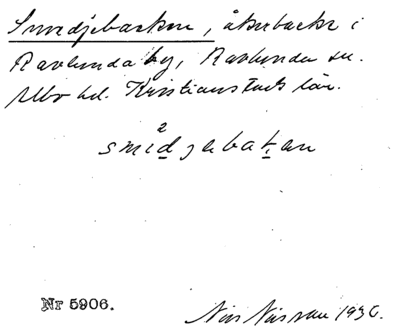 Smedjebacken, åkerbacke i
Ravlunda by, Ravlunda sn.
Albo hd. Kristianstads län.
2
smidjebakan
Nr 5906.
Nils Nilsson 1936.